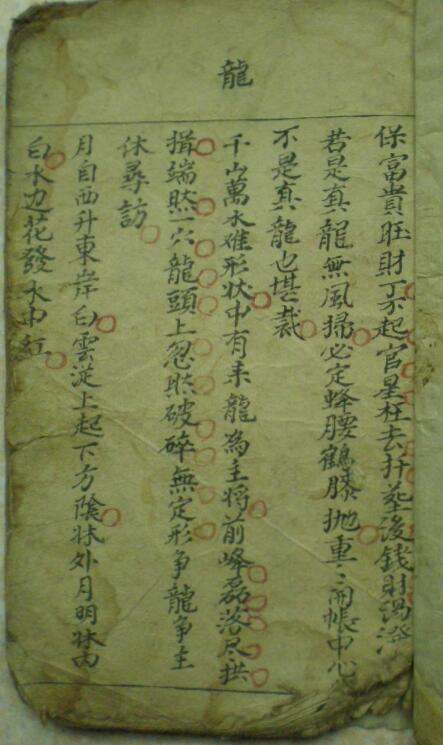 龍
保富貴旺財丁不起官星枉去扦塟後錢財濁
若是真龍無風掃必定蜂腰鶴膝抛重〻開帳中心
不是真龍也堪裁
千山萬水难形状中有来龍為主将前峰磊落尽拱
揖端然一穴龍頭上忽然破碎無定形争龍争主
休尋訪
月自西升東岸白雲從上起下方陰林外月明林内
白水边花發水中紅